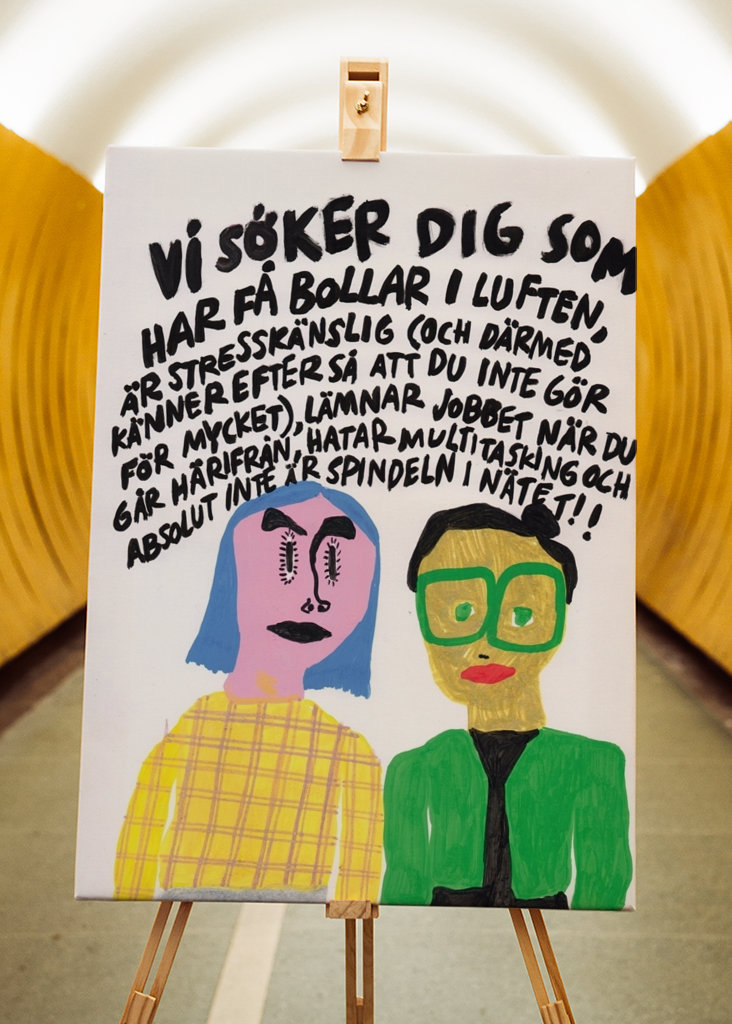 VI SÖKER DIG SOM
HAR FÅ BOLLAR I LUFTEN,
ÄR STRESSKÄNSLIG (OCH DÄRMED
KÄNNER EFTER SÅ ATT DU INTE GÖR
FÖR MYCKET), LÄMNAR JOBBET NÄR DU
GÅR HÄRIFRÅN, HATAR MULTITASKING OCH
ABSOLUT INTE ÄR SPINDELN I NÄTET!!